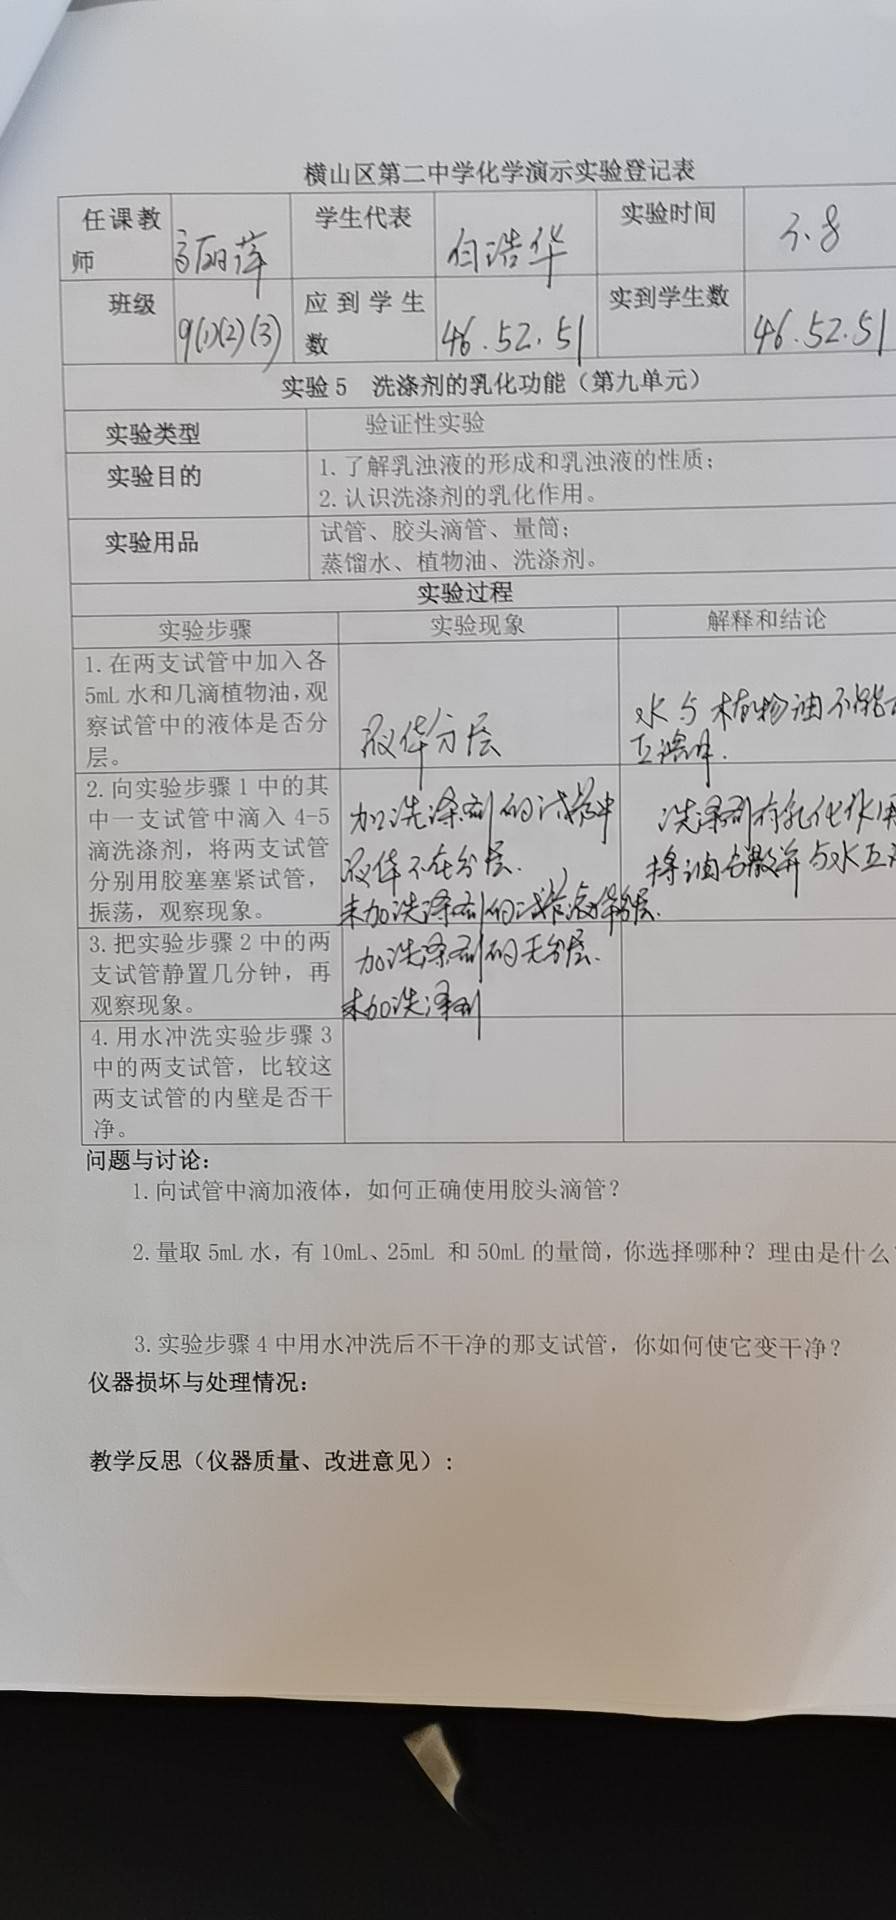 横山区第二中学化学演示实验登记表
任课教师 高丽萍 学生代表 白浩华 实验时间 3.8
班级 9(1)(2)(3) 应到学生数 46.52.51 实到学生数 46.52.51
实验5 洗涤剂的乳化功能（第九单元）
实验类型 验证性实验
实验目的
1.了解乳浊液的形成和乳浊液的性质；
2.认识洗涤剂的乳化作用。
实验用品
试管、胶头滴管、量筒；
蒸馏水、植物油、洗涤剂。
实验过程
实验步骤 实验现象 解释和结论
1.在两支试管中加入各
5mL水和几滴植物油，观
察试管中的液体是否分
层。
液体分层
水与植物油不能
互溶.
2.向实验步骤1中的其
中一支试管中滴入4-5
滴洗涤剂，将两支试管
分别用胶塞塞紧试管，
振荡，观察现象。
加洗涤剂的试管中
液体不在分层.
未加洗涤剂的试管液体分层.
洗涤剂有乳化作用
将油 散并与水互
3.把实验步骤2中的两
支试管静置几分钟，再
观察现象。
加洗涤剂的无分层.
未加洗涤剂
4.用水冲洗实验步骤3
中的两支试管，比较这
两支试管的内壁是否干
净。
问题与讨论：
1.向试管中滴加液体，如何正确使用胶头滴管？
2.量取5mL水，有10mL、25mL 和50mL的量筒，你选择哪种？理由是什么
3.实验步骤4中用水冲洗后不干净的那支试管，你如何使它变干净？
仪器损坏与处理情况：
教学反思（仪器质量、改进意见）：